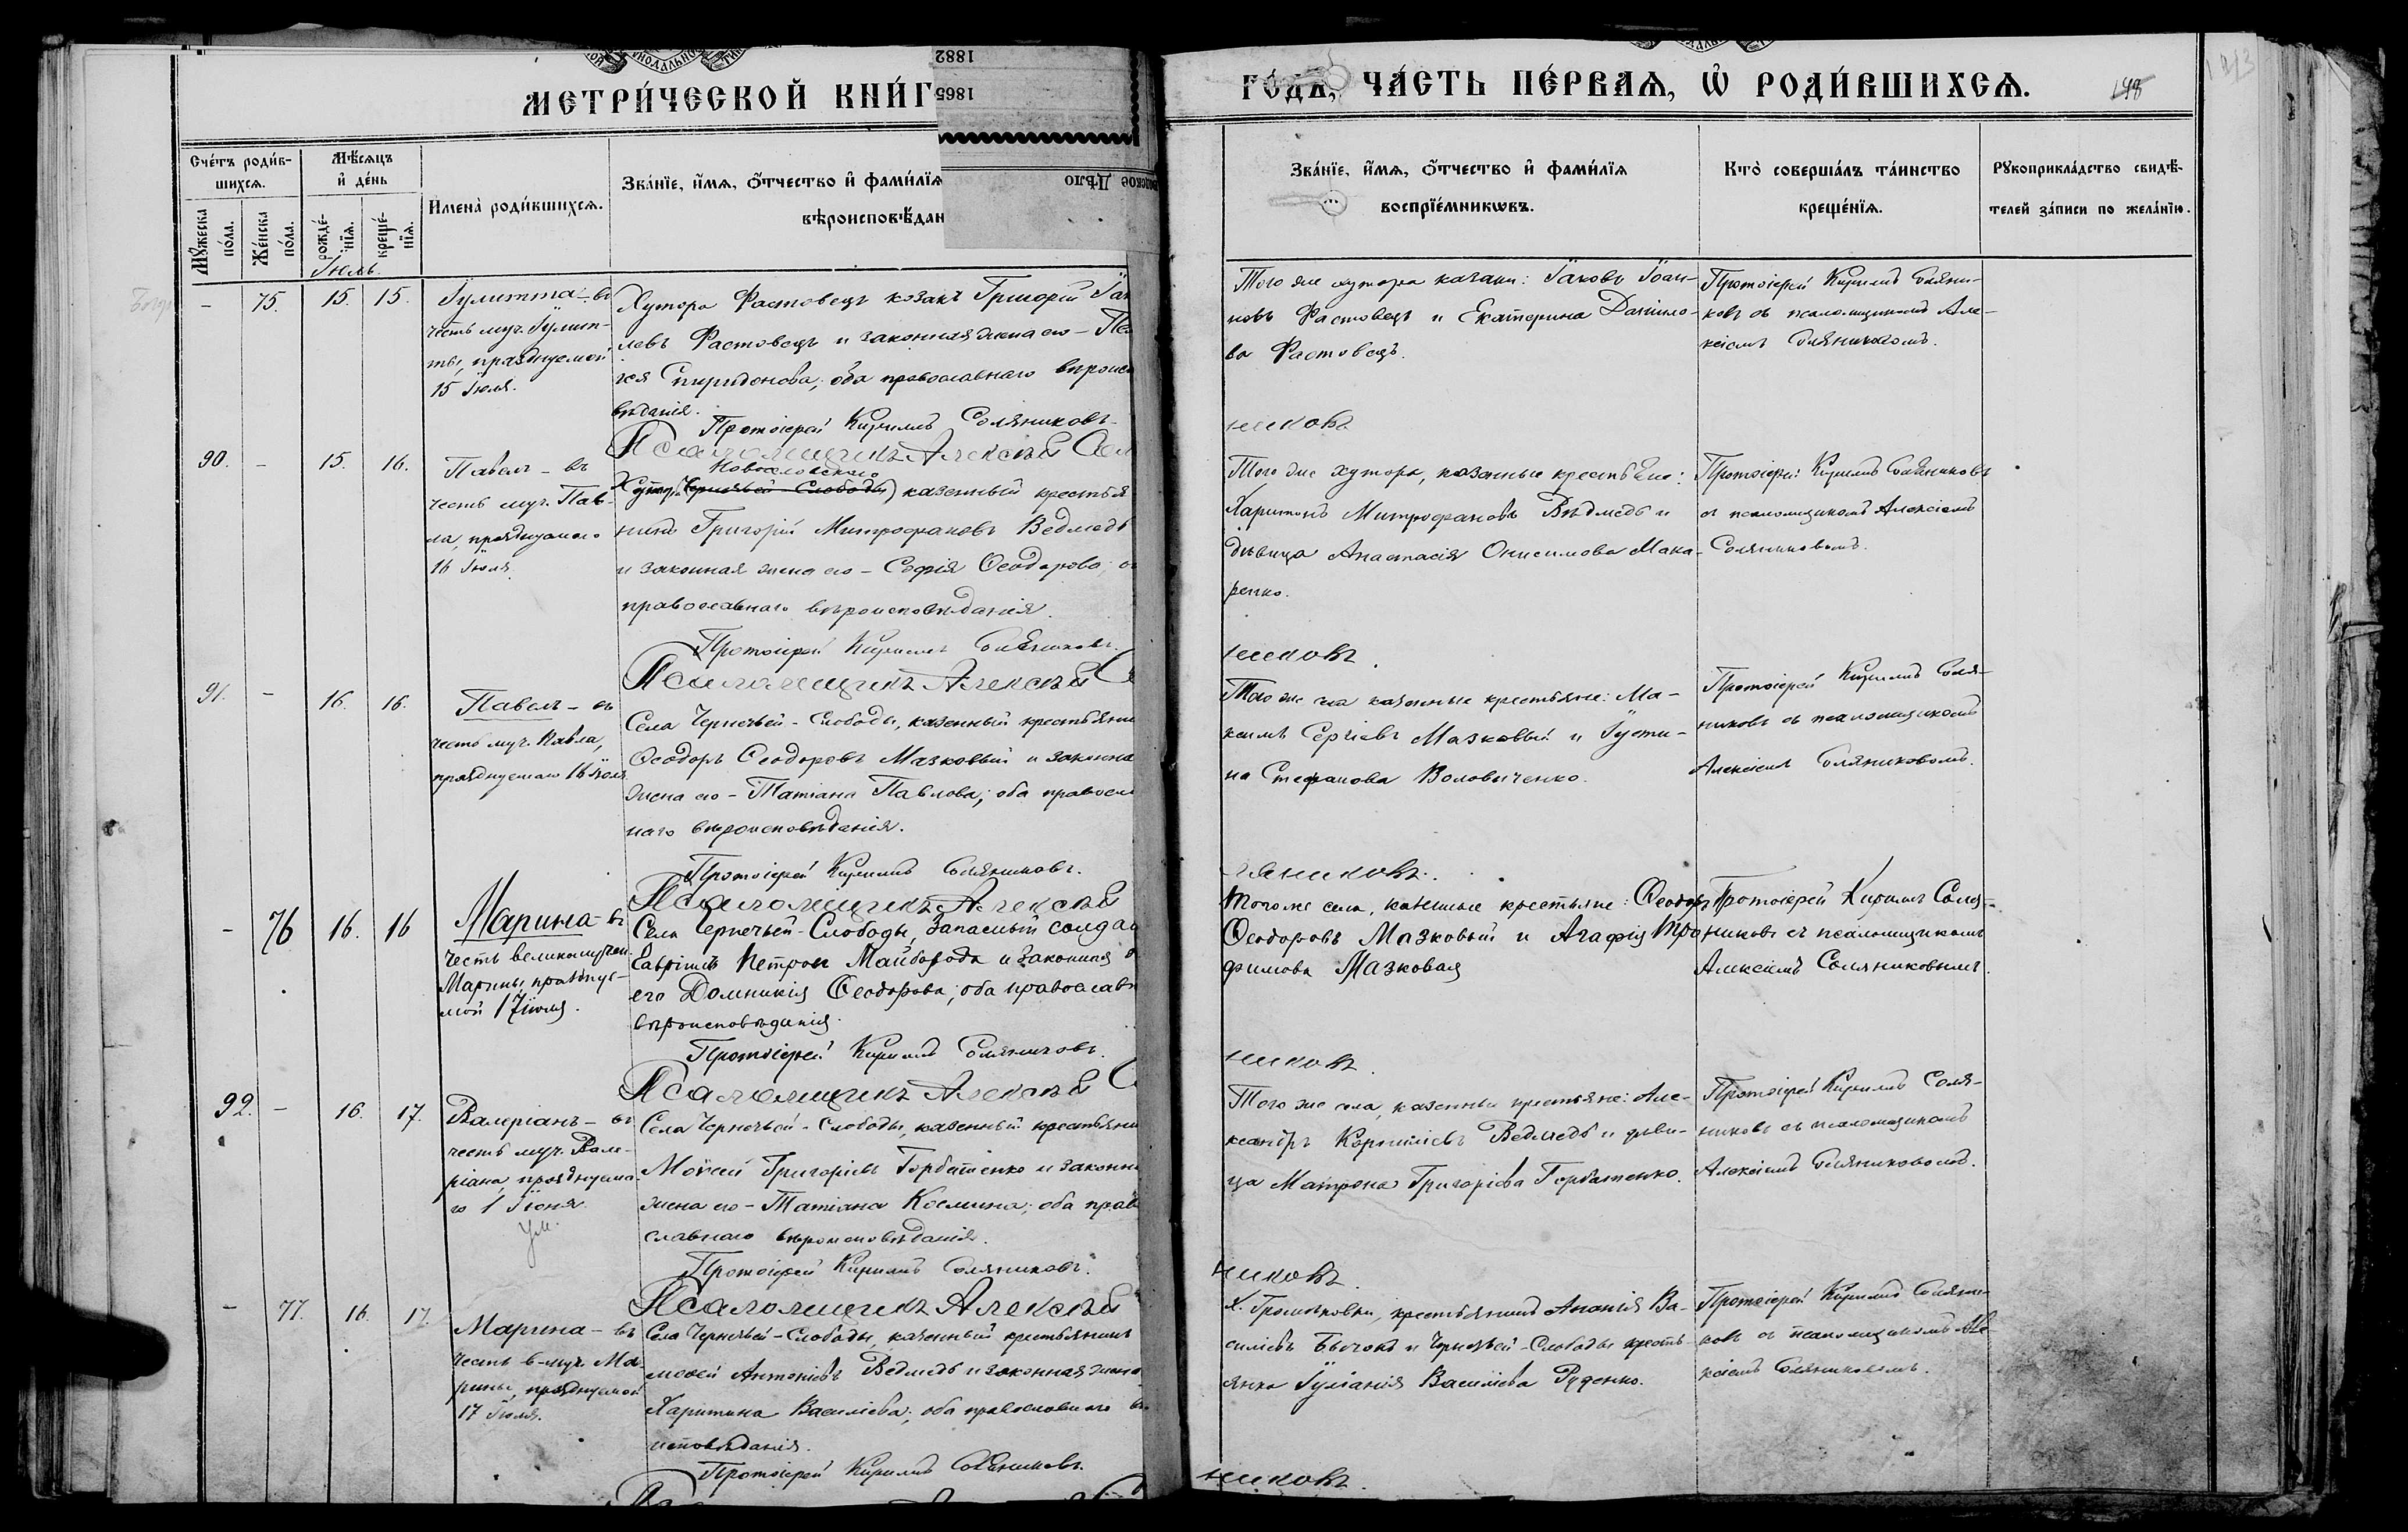 МЕТРИ́ЧЕСКОЙ КНИ́Г
1882
1865
Дѣло
ГО́ДЪ, ЧА́СТЬ ПЕ́РВАЯ, Ѡ РОДИ́ВШИХСЯ.
148
Сче́тъ роди́в-
шихся.
Мѣ́сяцъ
и де́нь
Му́жеска
по́ла.
Же́нска
по́ла.
рожде́-
нїя.
креще́-
нїя.
Имена̀ роди́вшихся.
Зва́нїе, и́мя, о́тчество и фами́лїя
вѣроисповѣ́дан
Зва́нїе, и́мя, о́тчество и фами́лїя
воспрїе́мниковъ.
Кто̀ соверша́лъ та́инство
креще́нїя.
Рукоприкла́дство свидѣ́-
телей за́писи по жела́нїю.
Іюль.
– 75. 15. 15.
Іулитта – въ
честь муч. Іулит-
ты, празднуемой
15 Іюля.
Хутора Фастовецъ козакъ Григорій
левъ Фастовецъ и законная жена его –
Спиридонова; оба православнаго вѣроиспо
вѣданія.
Протоіерей Кириллъ Соляниковъ.
Псаломщикъ Алексѣй Сол
Того же хутора козаки: Іаковъ Іоан-
новъ Фастовецъ и Екатерина Данило-
ва Фастовецъ.
никовъ
Протоіерей Кириллъ Соляни-
ковъ съ псаломщикомъ Але-
ксіемъ Соляниковымъ.
90. – 15. 16.
Павелъ – въ
честь муч. Пав-
ла, празднуемаго
16 Іюля.
Новоселовскаго
Хутора (Чернечьей-Слободы) казенный крестья
нинъ Григорій Митрофановъ Ведмедь
и законная жена его – Софія Ѳеодорова;
православнаго вѣроисповѣданія.
Протоіерей Кириллъ Соляниковъ.
Псаломщикъ Алексѣй С
Того же хутора, казенные крестьяне:
Харитонъ Митрофановъ Вѣдмедь и
дѣвица Анастасія Онисимова Мака-
ренко.
никовъ.
Протоіерей Кириллъ Соляниковъ
съ псаломщикомъ Алексіемъ
Соляниковымъ.
91. – 16. 16.
Павелъ – въ
честь муч. Павла,
празднуемаго 16 Іюля
Села Чернечьей-Слободы, казенный крестьяни
Ѳеодоръ Ѳеодоровъ Мазковый и законна
жена его – Татіана Павлова; оба правосла
наго вѣроисповѣданія.
Протоіерей Кириллъ Соляниковъ.
Псаломщикъ Алексѣй
Того же села казенные крестьяне: Ма-
ксимъ Сергіевъ Мазковый и Іусти-
на Стефанова Воловиченко.
ляниковъ.
Протоіерей Кириллъ Соля-
никовъ съ псаломщикомъ
Алексіемъ Соляниковымъ.
– 76 16. 16
Марина – въ
честь великомучен.
Марины, празднуе-
мой 17 Іюля.
Села Чернечьей-Слободы, запасный солда
Гавріилъ Петровъ Майборода и законная
его Домникія Ѳеодорова; оба православн
вѣроисповѣданія.
Протоіерей Кириллъ Соляниковъ.
Псаломщикъ Алексѣй С
Того же села, казенные крестьяне: Ѳеодоръ
Ѳеодоровъ Мазковый и Агафія Тро-
фимова Мазковая
никовъ.
Протоіерей Кириллъ Соля-
никовъ съ псаломщикомъ
Алексіемъ Соляниковымъ.
92. – 16. 17.
Валеріанъ – въ
честь муч. Вале-
ріана, празднуема-
го 1 Іюня.
ум.
Села Чернечьей-Слободы, казенный крестьяни
Моѵсей Григоріевъ Горбатенко и законна
жена его – Татіана Космина; оба право
славнаго вѣроисповѣданія.
Протоіерей Кириллъ Соляниковъ.
Псаломщикъ Алексѣй
Того же села, казенные крестьяне: Але-
ксандръ Корниліевъ Ведмедь и дѣви-
ца Матрона Григоріева Горбатенко.
никовъ.
Протоіерей Кириллъ Соля-
никовъ съ псаломщикомъ
Алексіемъ Соляниковымъ.
– 77. 16. 17.
Марина – въ
честь в-муч. Ма-
рины, празднуемой
17 Іюля.
Села Чернечьей-Слободы, казенный крестьянинъ
Моѵсей Антоніевъ Ведмедь и законная жена
Харитина Василіева; оба православнаго вѣ
исповѣданія.
Протоіерей Кириллъ Соляниковъ.
крестьянинъ Ананія Ва-
силіевъ Бычокъ и Чернечьей-Слободы кресть-
янка Іуліанія Василіева Руденко.
никовъ.
Протоіерей Кириллъ Соляни-
ковъ съ псаломщикомъ Але
ксіемъ Соляниковымъ.